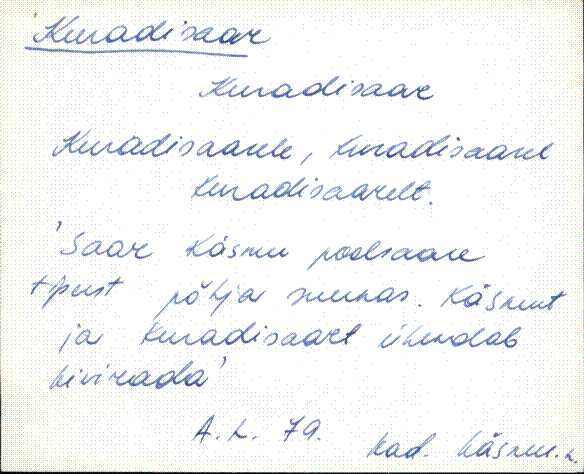 Kuradisaar
Kuradisaar
Kuradisaarele, Kuradisaarel
Kuradisaarelt.
'Saar Käsmu poolsaare
tipust põhja suunas. Käsmut
ja Kuradisaart ühendab
kivirada'
A. L. 79.
Kad. Käsmu. k.